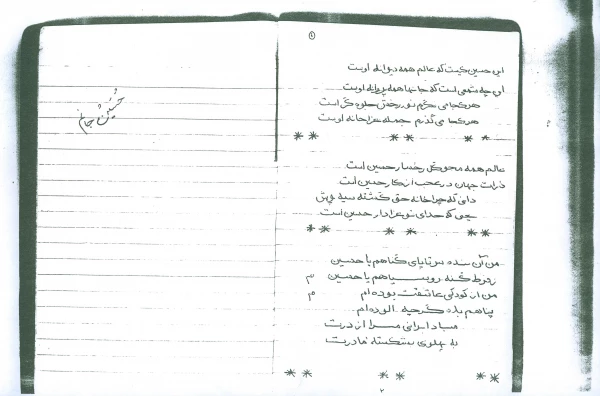 این حسین کیست که عالم همه دیوانه اوست
این چه شمعی است که جانها همه پروانه اوست
هر کجا می نگرم نور رخش جلوه گر است
هر کجا می گذرم جمله عزاخانه اوست
** ** **
عالم همه محو گل رخسار حسین است
ذرات جهان در عجب از کار حسین است
دانی که چرا خانه حق گشته سیه پوش
یعنی که خدای تو عزادار حسین است
** ** **
من آن سده سر تا پای گناهم یا حسین
ز فرط گنه رو سیاهم یا حسین
من از کودکی عاشقت بوده ام
پناهم بده گرچه آلوده ام
مبادا برانی مرا از درت
به پهلوی شکسته مادرت
** ** **
۲
حسین جانم